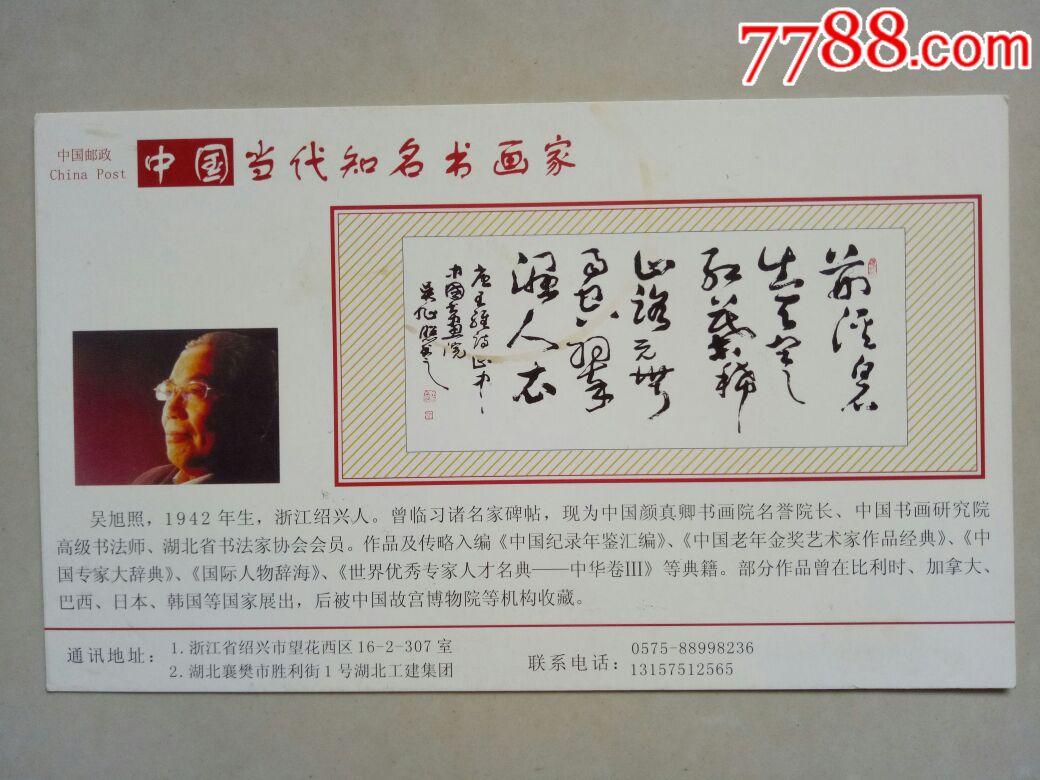 7788.com
中国邮政
China Post
中国当代知名书画家
荆溪白石
出天寒
红葉稀
山路元無
雨空翠
濕人衣
唐王維诗山中
中國書畫院
吴旭照書
吴旭照，1942年生，浙江绍兴人。曾临习诸名家碑帖，现为中国颜真卿书画院名誉院长、中国书画研究院
高级书法师、湖北省书法家协会会员。作品及传略入编《中国纪录年鉴汇编》、《中国老年金奖艺术家作品经典》、《中
国专家大辞典》、《国际人物辞海》、《世界优秀专家人才名典——中华卷III》等典籍。部分作品曾在比利时、加拿大、
巴西、日本、韩国等国家展出，后被中国故宫博物院等机构收藏。
通讯地址：
1.浙江省绍兴市望花西区16-2-307室
2.湖北襄樊市胜利街1号湖北工建集团
联系电话：
0575-88998236
13157512565